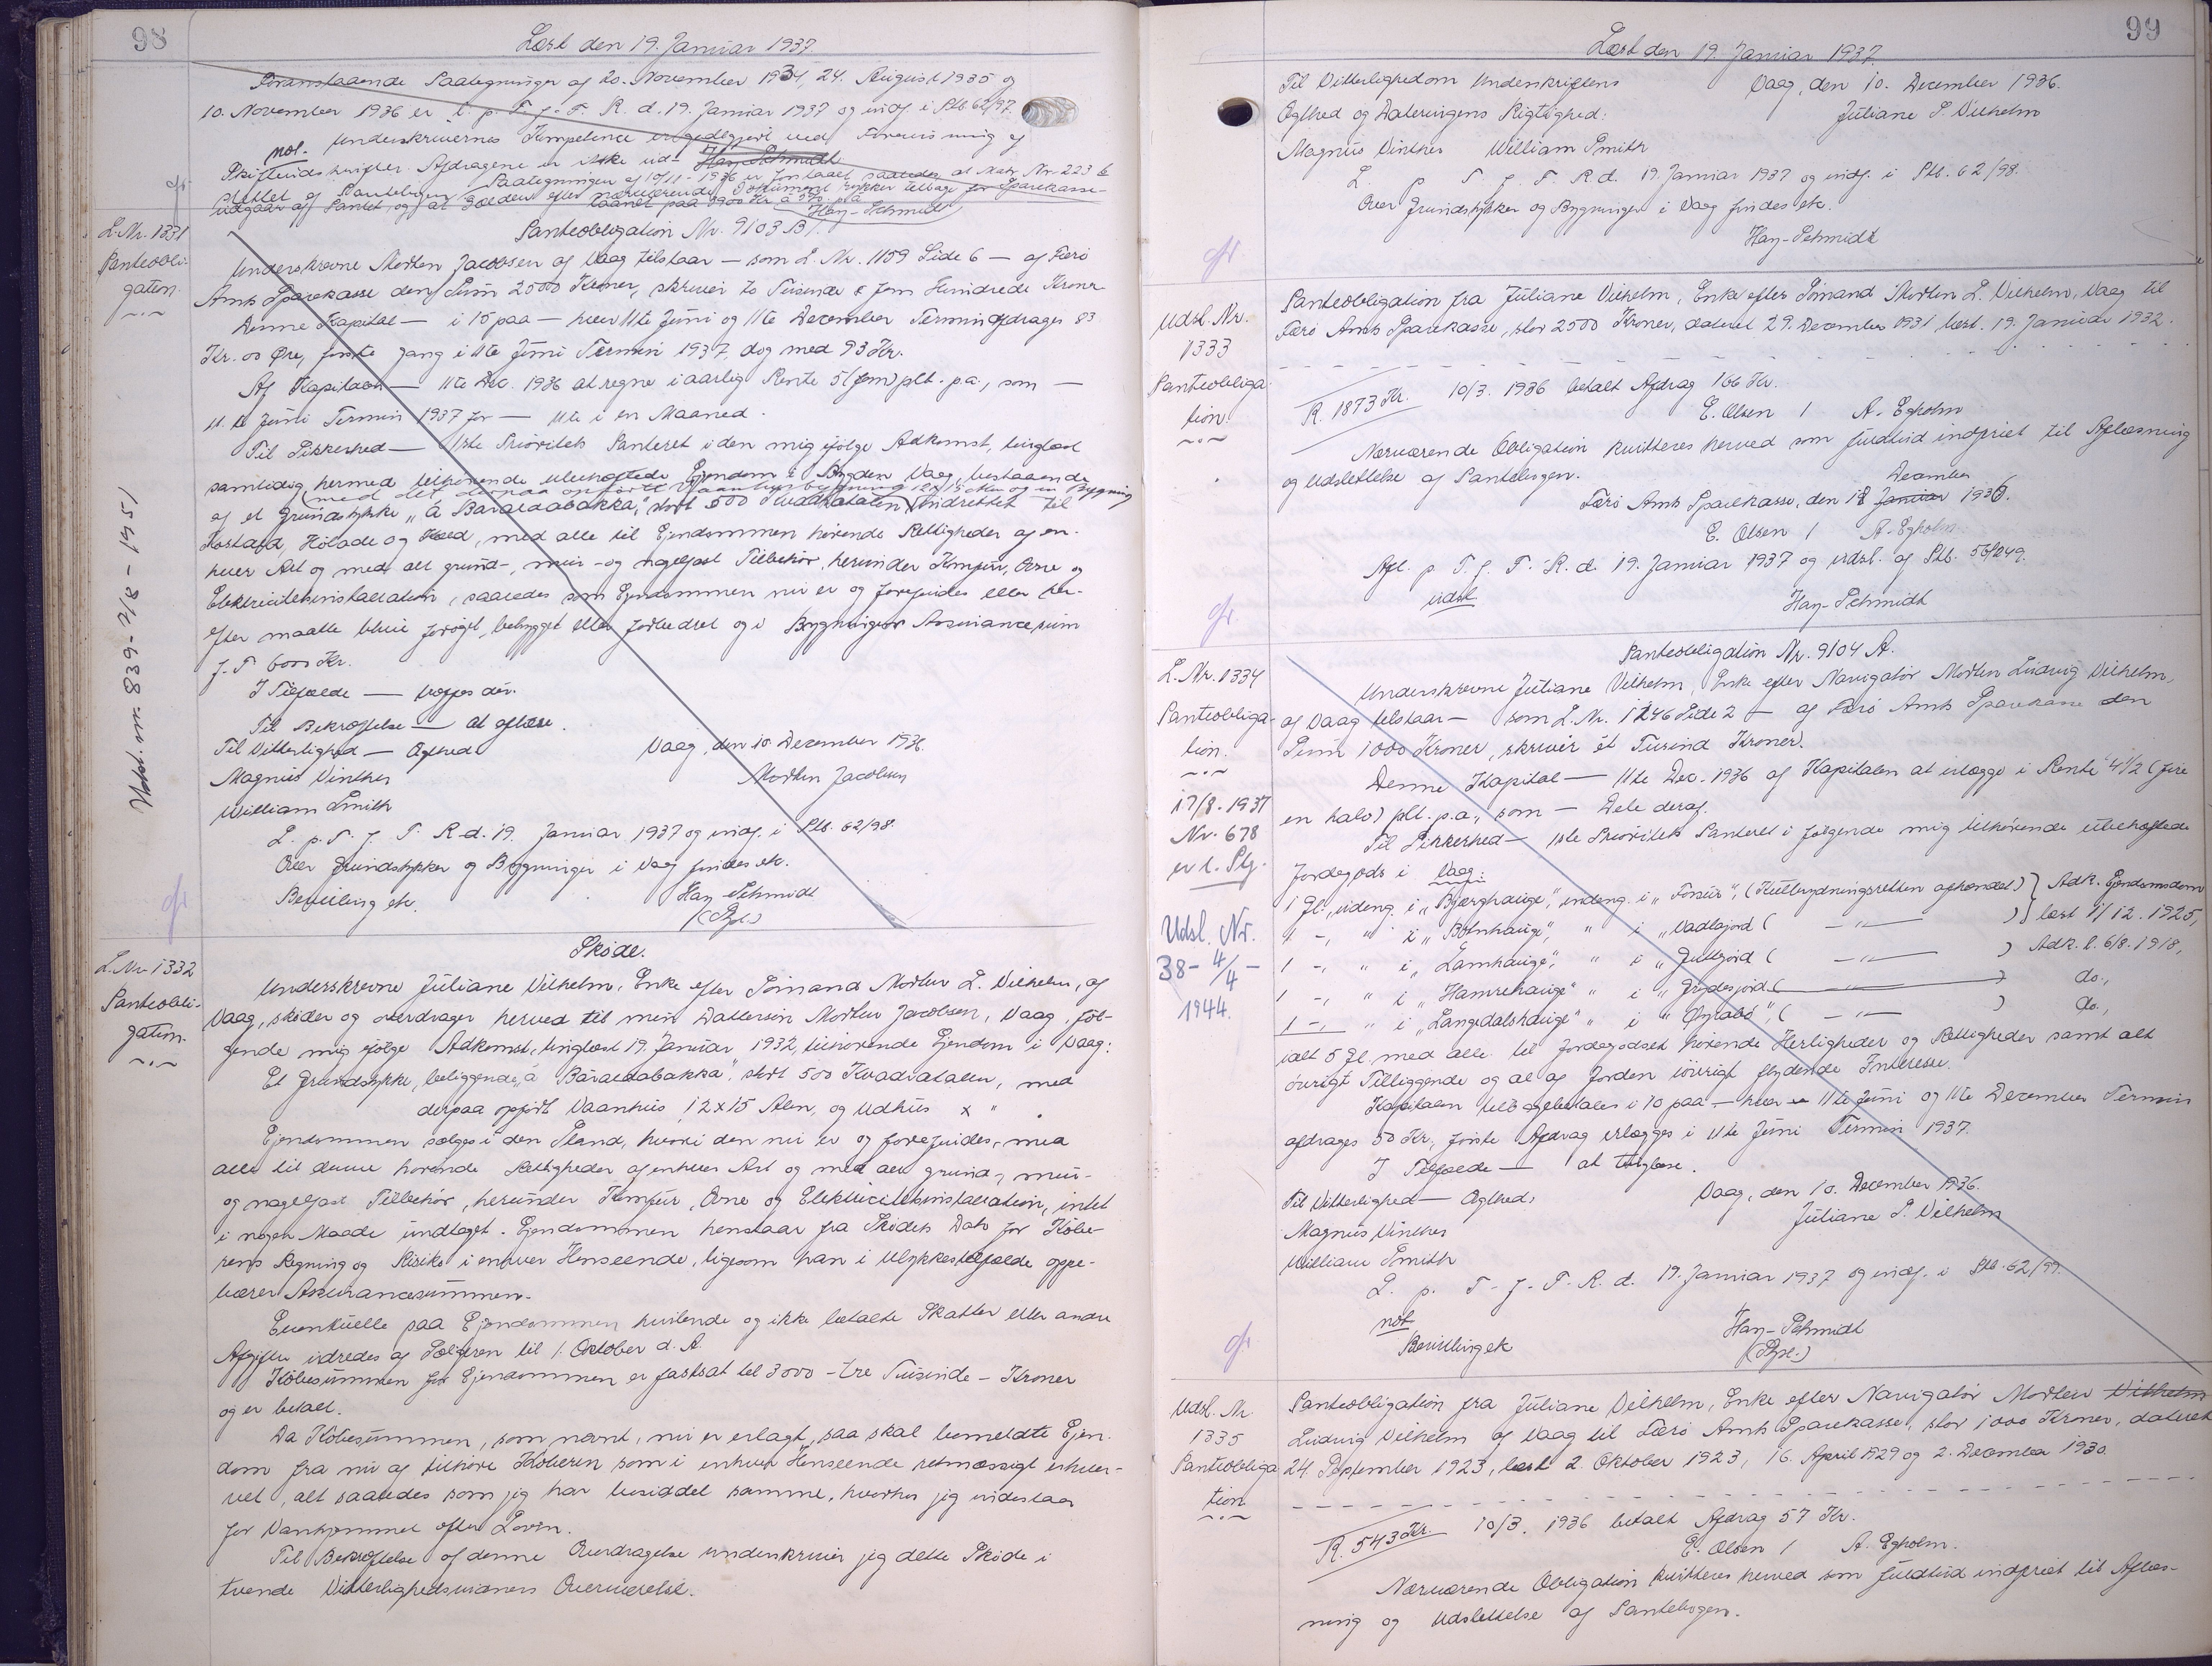 98
Læst den 19. Januar 1937.
Foranstaaende Paategninger af 20. November 1934, 24. August 1935 og
10. November 1936 er l. p. T. f. F. R. d. 19. Januar 1937 og indf. i Ptb 62/97.
not. Underskrivernes Kompetence er godtgjort ved Forevisning af
Skifteudskrifter. Afdragene er ikke ud-
Hay-Schmidt
slettet af Pantebogen. Paategningen af 10/11-1936 er forstaaet saaledes, at Matr. Nr. 223 b
udgaar af Pantet, og at Gælden efter nærværende Dokument rykker tilbage for Sparekasse-
laanet paa 2900 Kr. à 5% p.a.
Hay-Schmidt
gr
L. Nr. 1331
Panteobli-
gation.
Udsl. nr. 839 - 2/8 - 1951
Panteobligation Nr. 9103 B.
Underskrevne Morten Jacobsen af Vaag tilstaar — som L. Nr. 1159 Side 6 — af Færø
Amts Sparekasse den Sum 2500 Kroner, skriver to Tusinde & fem Hundrede Kroner
Denne Kapital — i 15 paa — hver 11te Juni og 11te December Termin afdrages 83
Kr. 00 Øre, første Gang i 11te Juni Termin 1937, dog med 93 Kr.
Af Kapitalen — 11te Dec. 1936 at regne i aarlig Rente 5 (fem) pCt. p.a., som —
11te Juni Termin 1937 for — 11te i en Maaned.
Til Sikkerhed — 1ste Prioritets Panteret i den mig ifølge Adkomst, tinglæst
samtidig hermed tilhørende ubehæftede Ejendom i Bygden Vaag, bestaaende
(med det derpaa opførte Vaaningshusbygning og en Bygning
af et Grundstykke „á Báraldabakka", stort 500 Kvadratalen, indrettet til
Kostald, Hølade og Hæld, med alle til Ejendommen hørende Rettigheder af en-
hver Art og med alt grund-, mur- og nagelfast Tilbehør, herunder Komfur, Ovne og
Elektricitetsinstallation, saaledes som Ejendommen nu er og forefindes eller her-
efter maatte blive forøget, bebygget eller forbedret og i Bygningens Assurancesum
f. T. 6000 Kr.
I Tilfælde — træffes der.
Til Bekræftelse — at aflæse.
Til Vitterlighed — Ægthed
Vaag, den 10. December 1936.
Magnus Vinther
Morten Jacobsen
William Smith
L. p. T. f. F. R. d. 19. Januar 1937 og indf. i Ptb. 62/98.
Over Grundstykker og Bygninger i Vaag findes etc.
Bevilling etc.
Hay-Schmidt
(Spl.)
gr
L. Nr. 1332
Panteobli-
gation.
Skøde.
Underskrevne Juliane Vilhelm, Enke efter Sømand Morten L. Vilhelm, af
Vaag, skøder og overdrager herved til min Dattersøn Morten Jacobsen, Vaag, føl-
gende mig ifølge Adkomst, tinglæst 19. Januar 1932, tilhørende Ejendom i Vaag:
Et Grundstykke, beliggende „á Báraldabakka", stort 500 Kvadratalen, med
derpaa opført Vaanhus, 12 x 15 Alen, og Udhus x " .
Ejendommen sælges i den Stand, hvori den nu er og forefindes, med
alle til denne hørende Rettigheder af enhver Art og med alt grund-, mur-
og nagelfast Tilbehør, herunder Komfur, Ovne og Elektricitetsinstallation, intet
i nogen Maade undtaget. Ejendommen henstaar fra Skødets Dato for Købe-
rens Regning og Risiko i enhver Henseende, ligesom han i Ulykkestilfælde oppe-
bærer Assurancesummen.
Eventuelle paa Ejendommen hvilende og ikke betalte Skatter eller andre
Afgifter udredes af Sælgeren til 1. Oktober d. A.
Købesummen for Ejendommen er fastsat til 3000 - tre Tusinde - Kroner
og er betalt.
Da Købesummen, som nævnt, nu er erlagt, saa skal bemeldte Ejen-
dom fra nu af tilhøre Køberen som i enhver Henseende retmæssigt erhver-
vet, alt saaledes som jeg har besiddet samme, hvorhos jeg indestaar
for Vanhjemmel efter Loven.
Til Bekræftelse af denne Overdragelse underskriver jeg dette Skøde i
tvende Vitterlighedsvidners Overværelse.
99
Læst den 19. Januar 1937.
Til Vitterlighed om Underskriftens
Vaag, den 10. December 1936.
Ægthed og Dateringens Rigtighed:
Juliane S. Vilhelm
Magnus Vinther William Smith
L. p. T. f. F. R. d. 19. Januar 1937 og indf. i Ptb. 62/98.
Over Grundstykker og Bygninger i Vaag findes etc.
Hay-Schmidt
gr
Udsl. Nr.
1333
Panteobliga-
tion.
Panteobligation fra Juliane Vilhelm, Enke efter Sømand Morten L. Vilhelm, Vaag til
Færø Amts Sparekasse, stor 2500 Kroner, dateret 29. December 1931, læst 19. Januar 1932.
R. 1873 Kr. 10/3. 1936 betalt Afdrag 166 Kr.
E. Olsen / A. Egholm
Nærværende Obligation kvitteres herved som fuldtud indfriet til Aflæsning
og Udslettelse af Pantebogen.
December
Færø Amts Sparekasse, den 18 Januar 1936.
E. Olsen / A. Egholm
Afl. p. T. f. F. R. d. 19. Januar 1937 og udsl. af Ptb. 56/249.
udsl.
Hay-Schmidt
gr
L. Nr. 1334
Panteobliga-
tion.
17/8. 1937
Nr. 678
er l. Ptg.
Udsl. Nr.
38 - 4/4 -
1944.
Panteobligation Nr. 9104 A.
Underskrevne Juliane Vilhelm, Enke efter Navigatør Morten Ludvig Vilhelm,
af Vaag tilstaar — som L. Nr. 1246 Side 2 — af Færø Amts Sparekasse den
Sum 1000 Kroner, skriver ét Tusind Kroner.
Denne Kapital — 11te Dec. 1936 af Kapitalen at erlægge i Rente 4½ (fire
en halv) pCt. p.a., som — Dele deraf.
Til Sikkerhed — 1ste Prioritets Panteret i følgende mig tilhørende ubehæftede
Jordegods i Vaag:
1 Gl., udeng. i „Bjærghauge", indeng. i „Fossur", (Kultbrydningsretten afhændet) } Adk. Ejendomsdom
1 -, " i „Botnhauge", " i „Vadlajord ( — " — ) } læst 1/12. 1925,
1 -, " i „Lamhauge", " i „Gullgjord ( — " — ) Adk. l. 6/8. 1918,
1 -, " i „Hamrehauge" " i „Grydesjord ( — " — ) do.,
1 -, " i „Langedalshauge" " i „Ørnabø", ( — " — ) do.,
ialt 5 Gl. med alle til Jordegodset hørende Herligheder og Rettigheder samt alt
øvrigt Tilliggende og al af Jorden iøvrigt flydende Interesse.
Kapitalen tilbagebetales i 10 paa — hver 11te Juni og 11te December Termin
afdrages 50 Kr., første Afdrag erlægges i 11te Juni Termin 1937.
I Tilfælde — at tinglæse.
Til Vitterlighed — Ægthed:
Vaag, den 10. December 1936.
Magnus Vinther
Juliane S. Vilhelm
William Smith
L. p. T. f. F. R. d. 19. Januar 1937 og indf. i Ptb. 62/99.
not
Bevilling etc
Hay-Schmidt
(Spl.)
gr
Udsl. Nr.
1335
Panteobliga-
tion
Panteobligation fra Juliane Vilhelm, Enke efter Navigatør Morten Vilhelm
Ludvig Vilhelm af Vaag til Færø Amts Sparekasse, stor 1000 Kroner, dateret
24. September 1923, læst 2. Oktober 1923, 16. April 1929 og 2. December 1930.
R. 543 Kr. 10/3. 1936 betalt Afdrag 57 Kr.
E. Olsen / A. Egholm.
Nærværende Obligation kvitteres herved som fuldtud indfriet til Aflæs-
ning og Udslettelse af Pantebogen.